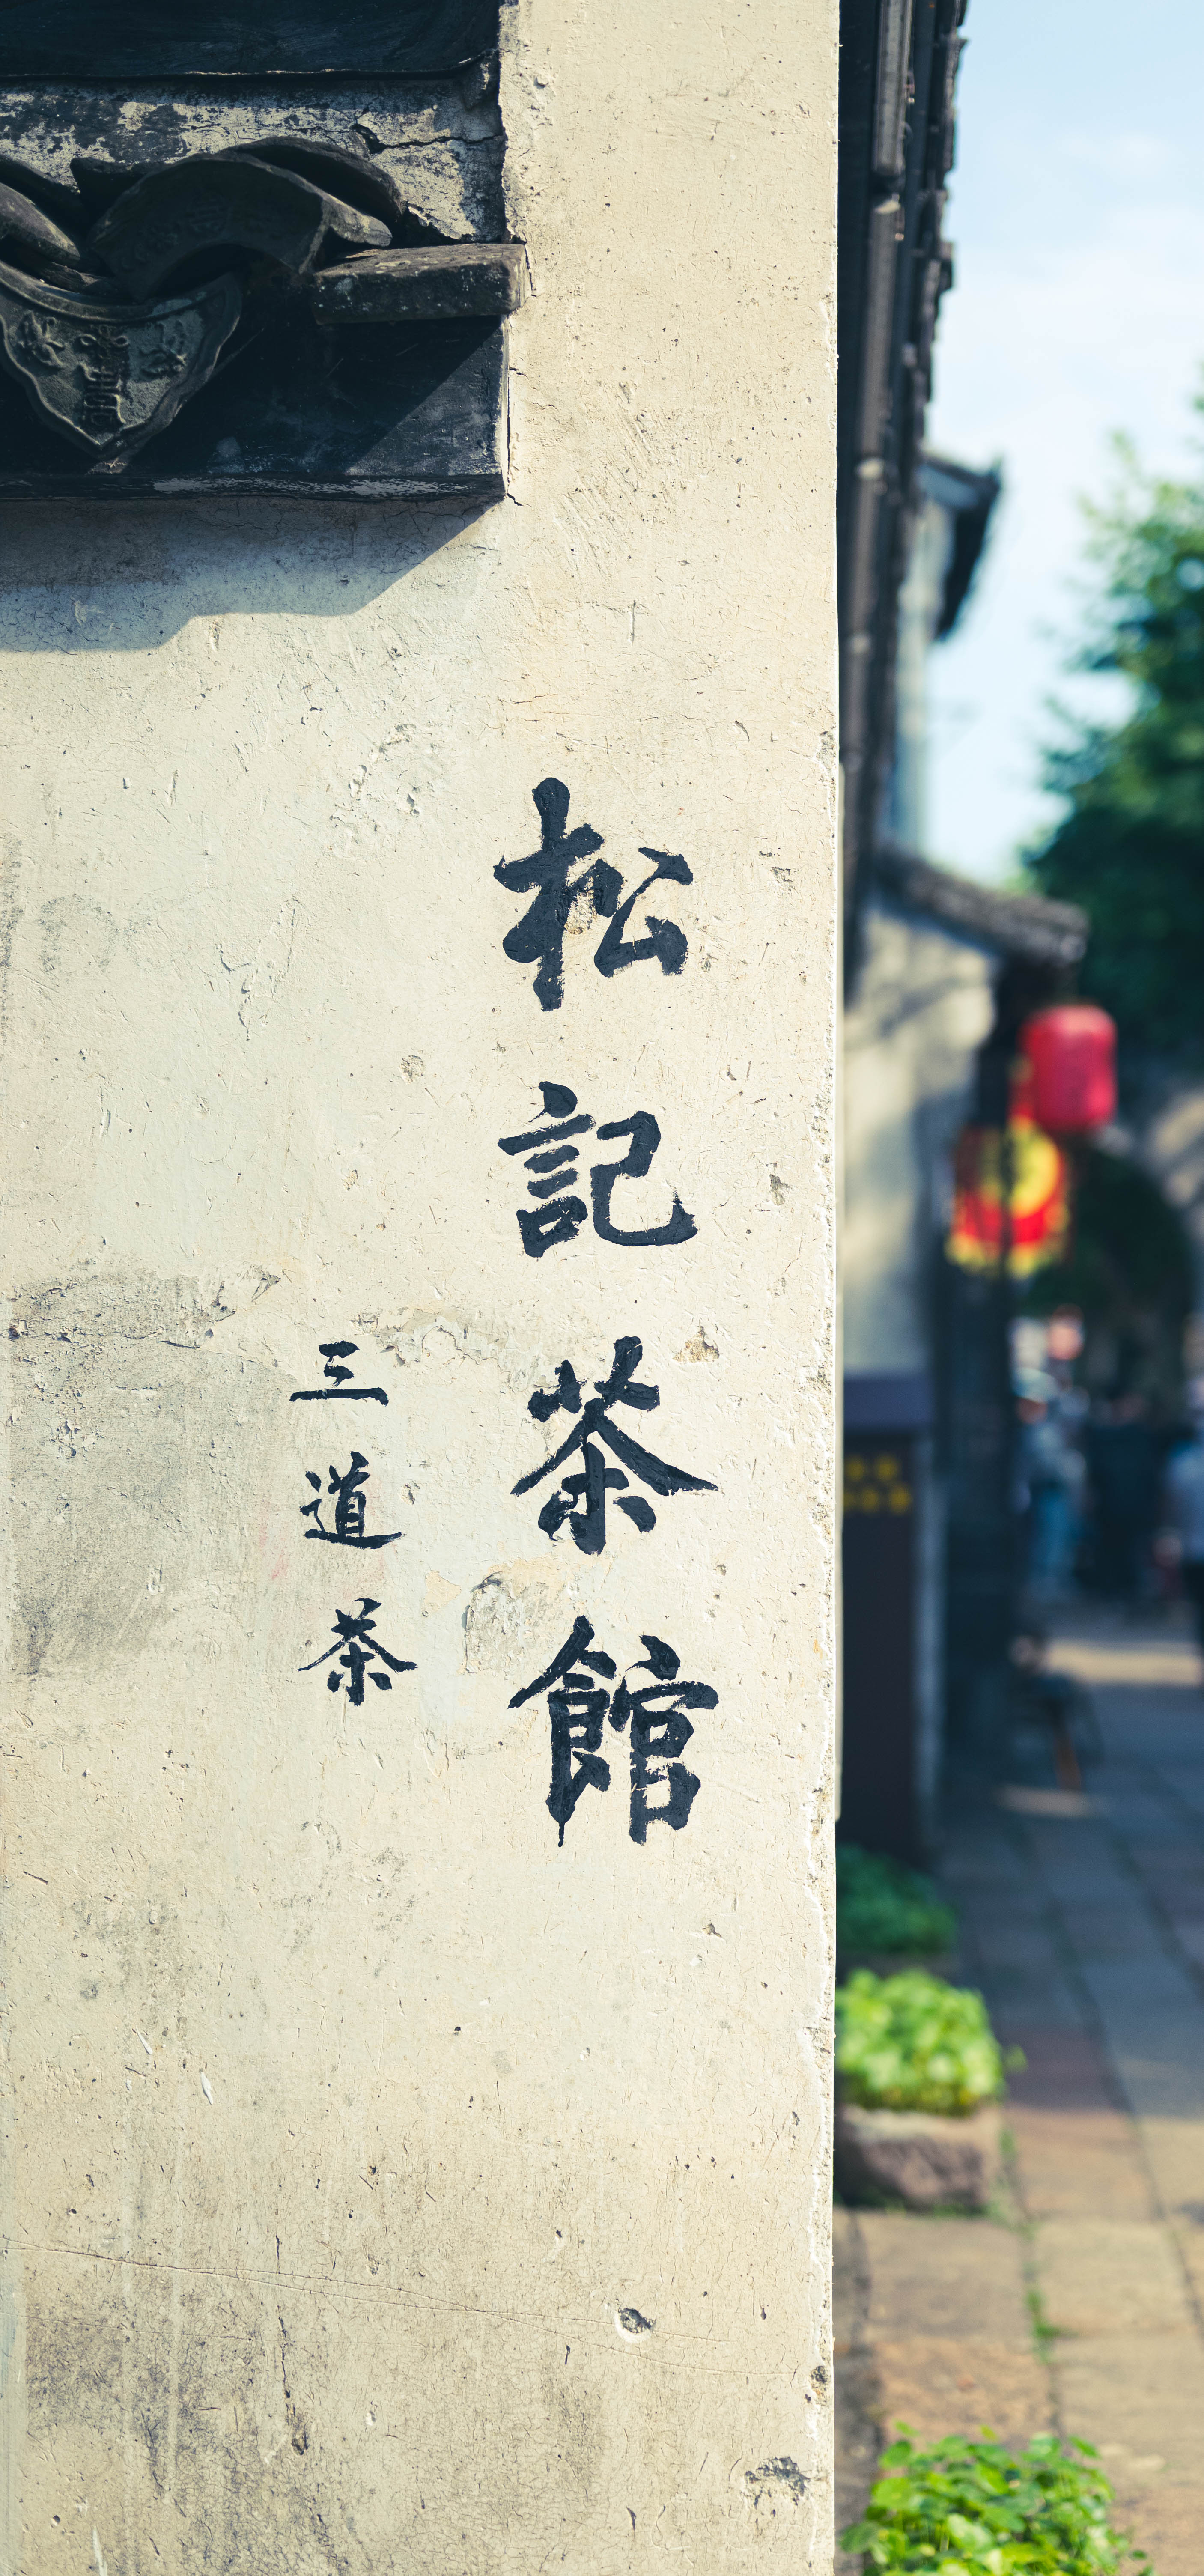 松記茶館
三道茶